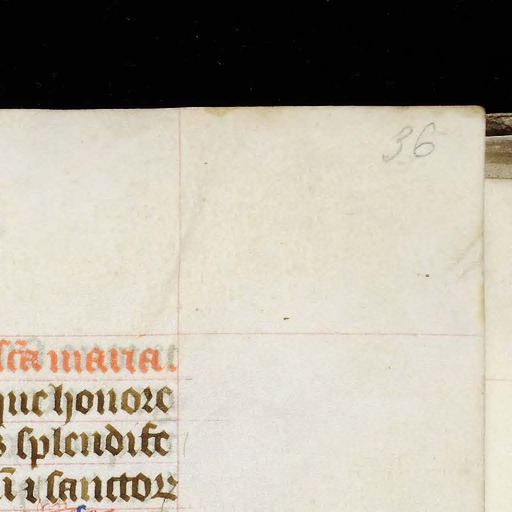 36
scā maria.
que honore
splendife
ū ⁊ sanctoꝝ